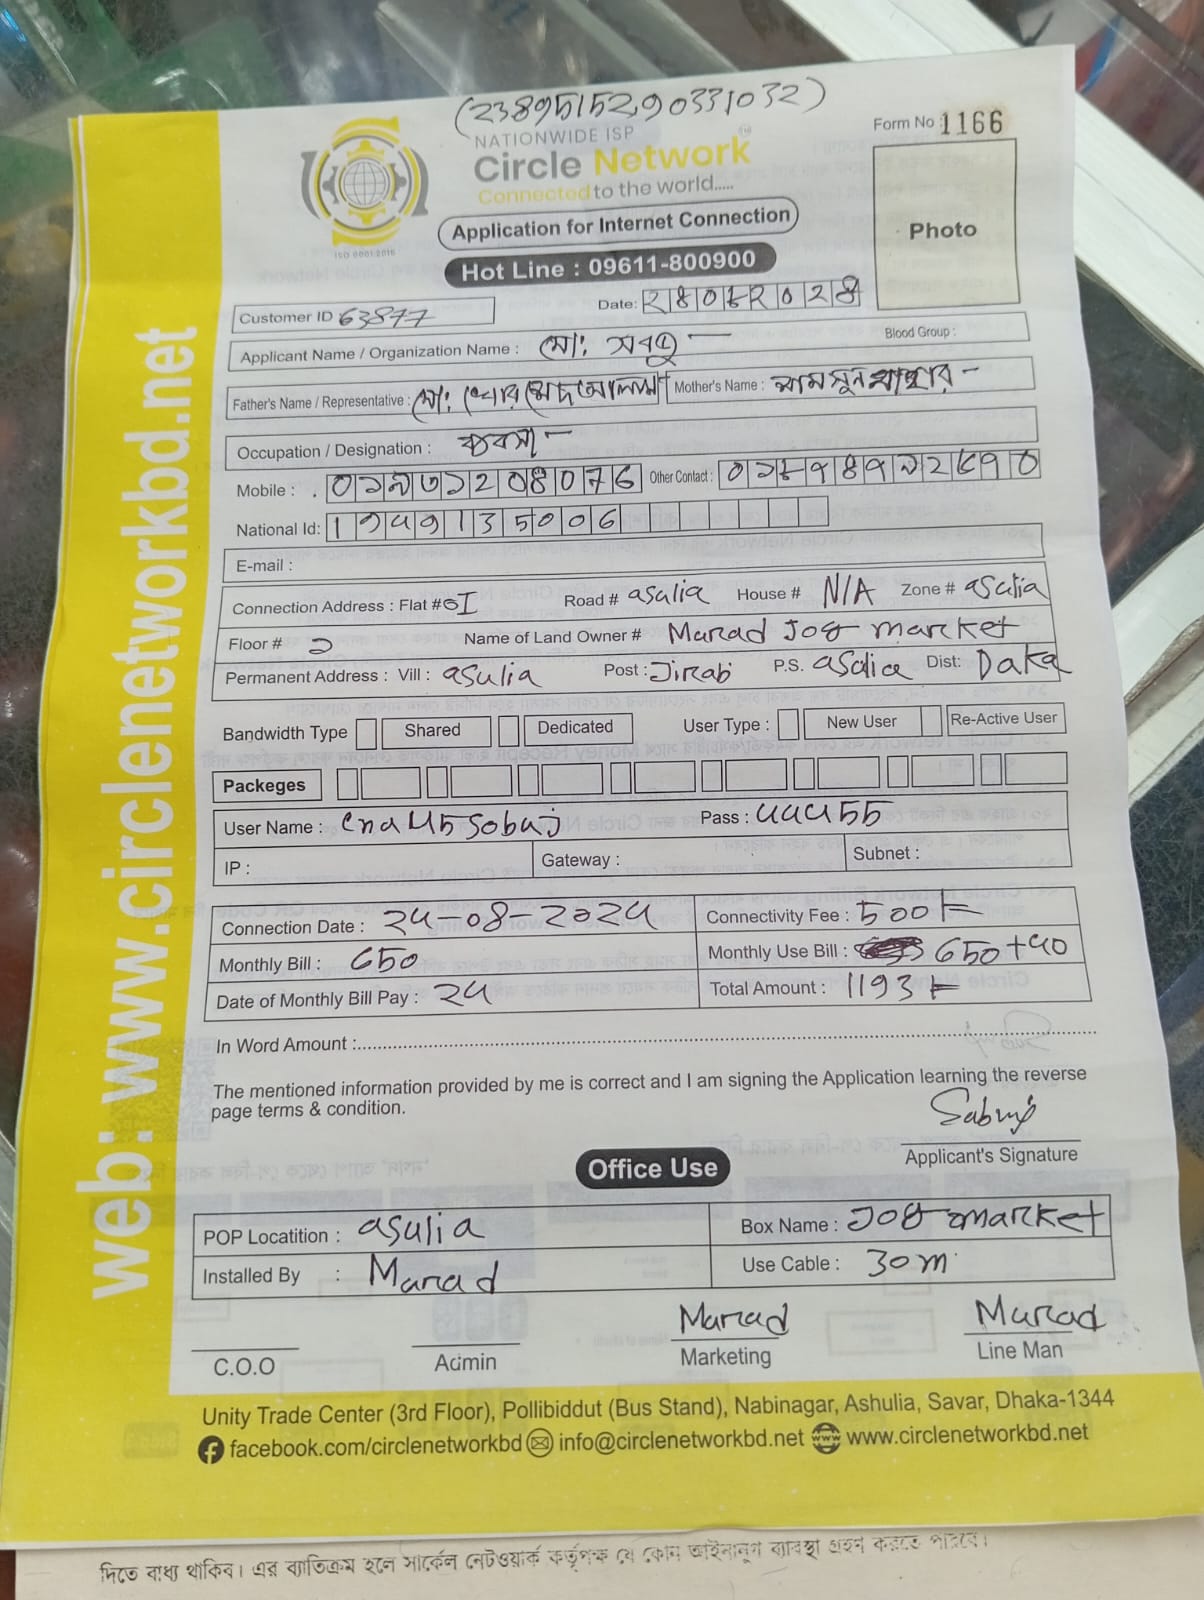 (238951529033 1032)
NATIONWIDE ISP
Circle Network
Connected to the world.....
Form No 1166
Photo
ISO 9001:2015
Application for Internet Connection
Hot Line : 09611-800900
Customer ID 63877
Date:
Applicant Name / Organization Name : মো: সবুজ
Blood Group :
Father's Name / Representative : মো:
Mother's Name :
Occupation / Designation : ব্যবসা
Mobile :
Other Contact :
National Id:
E-mail :
Connection Address : Flat # Road # asulia House # N/A Zone # asulia
Floor # 2 Name of Land Owner # Marad Job market
Permanent Address : Vill : asulia Post : Jirabi P.S. asulia Dist: Daka
Bandwidth Type Shared Dedicated User Type : New User Re-Active User
Packeges
User Name : cna45sobuj Pass : 44455
IP : Gateway : Subnet :
Connection Date : 24-08-2024 Connectivity Fee : 500
Monthly Bill : 650 Monthly Use Bill : 650+40
Date of Monthly Bill Pay : 24 Total Amount : 1193
In Word Amount :
The mentioned information provided by me is correct and I am signing the Application learning the reverse
page terms & condition.
Sabuj
Applicant's Signature
Office Use
POP Locatition : asulia Box Name : Job market
Installed By : Marad Use Cable : 30m
Marad Marad
C.O.O Admin Marketing Line Man
Unity Trade Center (3rd Floor), Pollibiddut (Bus Stand), Nabinagar, Ashulia, Savar, Dhaka-1344
facebook.com/circlenetworkbd info@circlenetworkbd.net www.circlenetworkbd.net
web: www.circlenetworkbd.net
দিতে বাধ্য থাকিব। এর ব্যতিক্রম হলে সার্কেল নেটওয়ার্ক কর্তৃপক্ষ যে কোন আইনানুগ ব্যাবস্থা গ্রহন করতে পারবে।